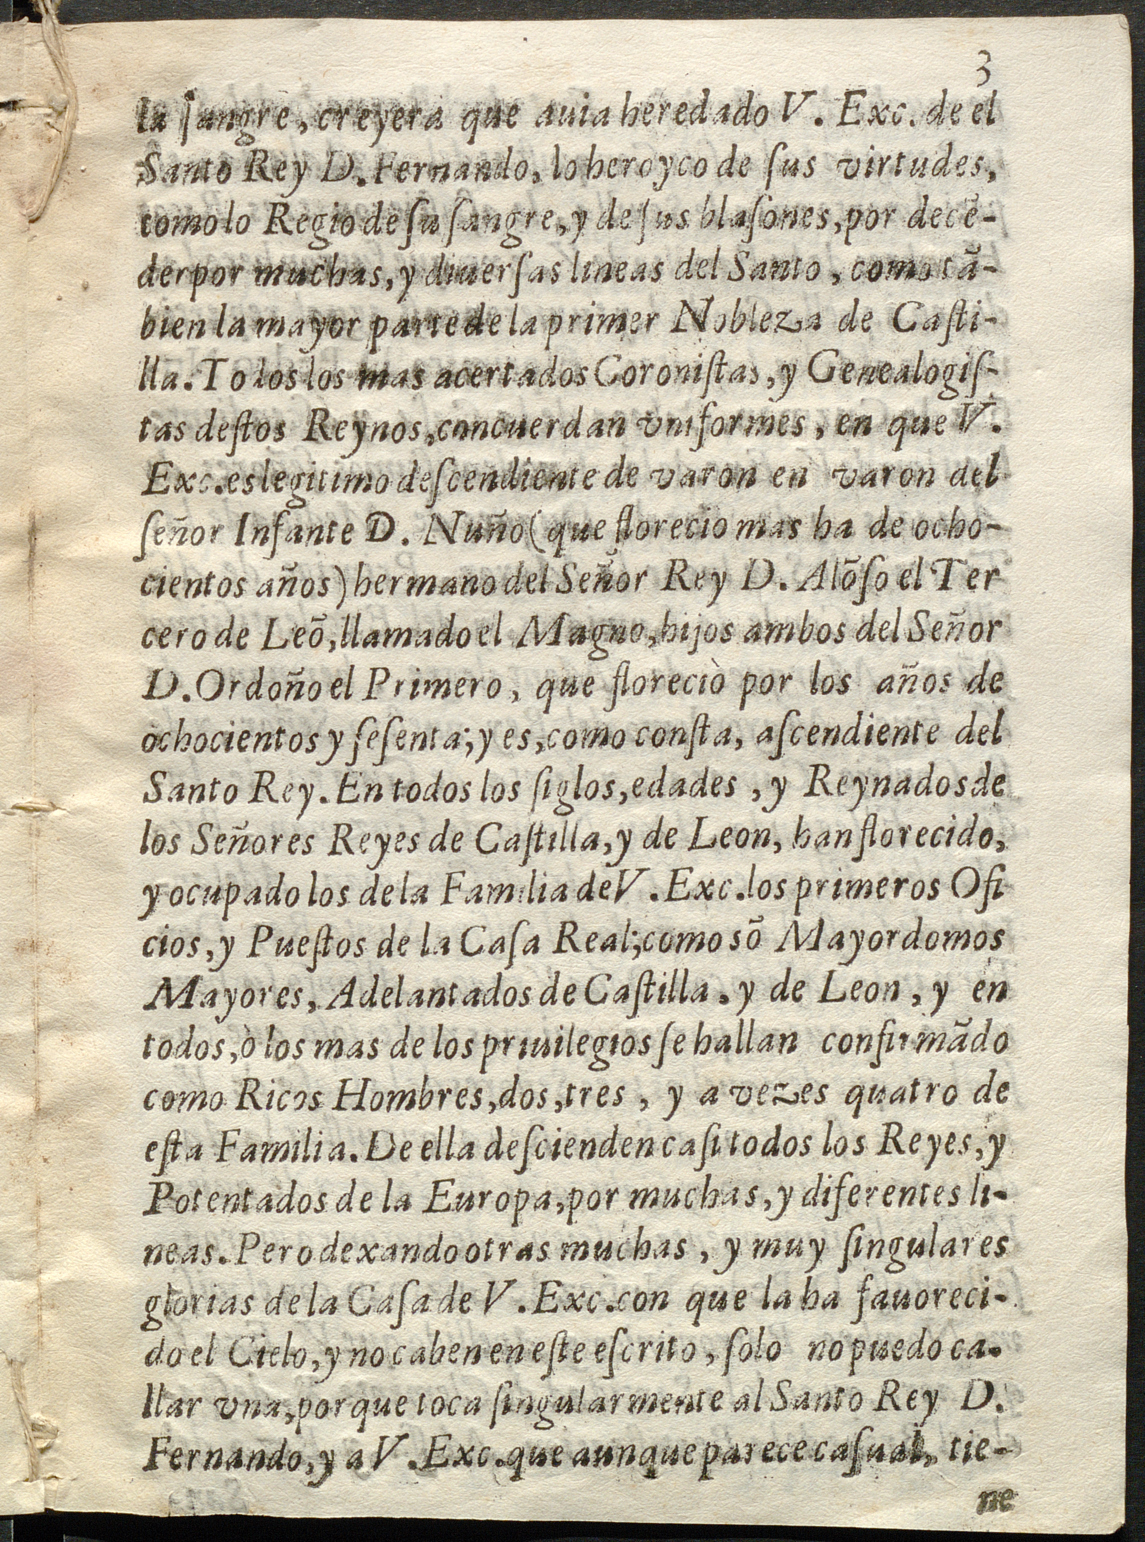 3
la ſangre, creyera que auia heredado V. Exc. de el
Santo Rey D. Fernando, lo heroyco de ſus virtudes,
como lo Regio de ſu ſangre, y de ſus blaſones, por decẽ-
der por muchas, y diuerſas lineas del Santo, como tã-
bien la mayor parte de la primer Nobleza de Caſti-
lla. Todos los mas acertados Coroniſtas, y Genealogiſ-
tas deſtos Reynos, concuerdan vniformes, en que V.
Exc. es legitimo deſcendiente de varon en varon del
ſeñor Infante D. Nuño (que florecio mas ha de ocho-
cientos años) hermano del Señor Rey D. Alõſo el Ter
cero de Leõ, llamado el Magno, hijos ambos del Señor
D. Ordoño el Primero, que floreciò por los años de
ochocientos y ſeſenta; y es, como conſta, aſcendiente del
Santo Rey. En todos los ſiglos, edades, y Reynados de
los Señores Reyes de Caſtilla, y de Leon, han florecido,
y ocupado los de la Familia de V. Exc. los primeros Ofi
cios, y Pueſtos de la Caſa Real; como sõ Mayordomos
Mayores, Adelantados de Caſtilla, y de Leon, y en
todos, ò los mas de los priuilegios ſe hallan confirmãdo
como Ricos Hombres, dos, tres, y a vezes quatro de
eſta Familia. De ella deſcienden caſi todos los Reyes, y
Potentados de la Europa, por muchas, y diferentes li-
neas. Pero dexando otras muchas, y muy ſingulares
glorias de la Caſa de V. Exc. con que la ha fauoreci-
do el Cielo, y no caben en eſte eſcrito, ſolo no puedo ca-
llar vna, porque toca ſingularmente al Santo Rey D.
Fernando, y a V. Exc. que aunque parece caſual, tie-
ne